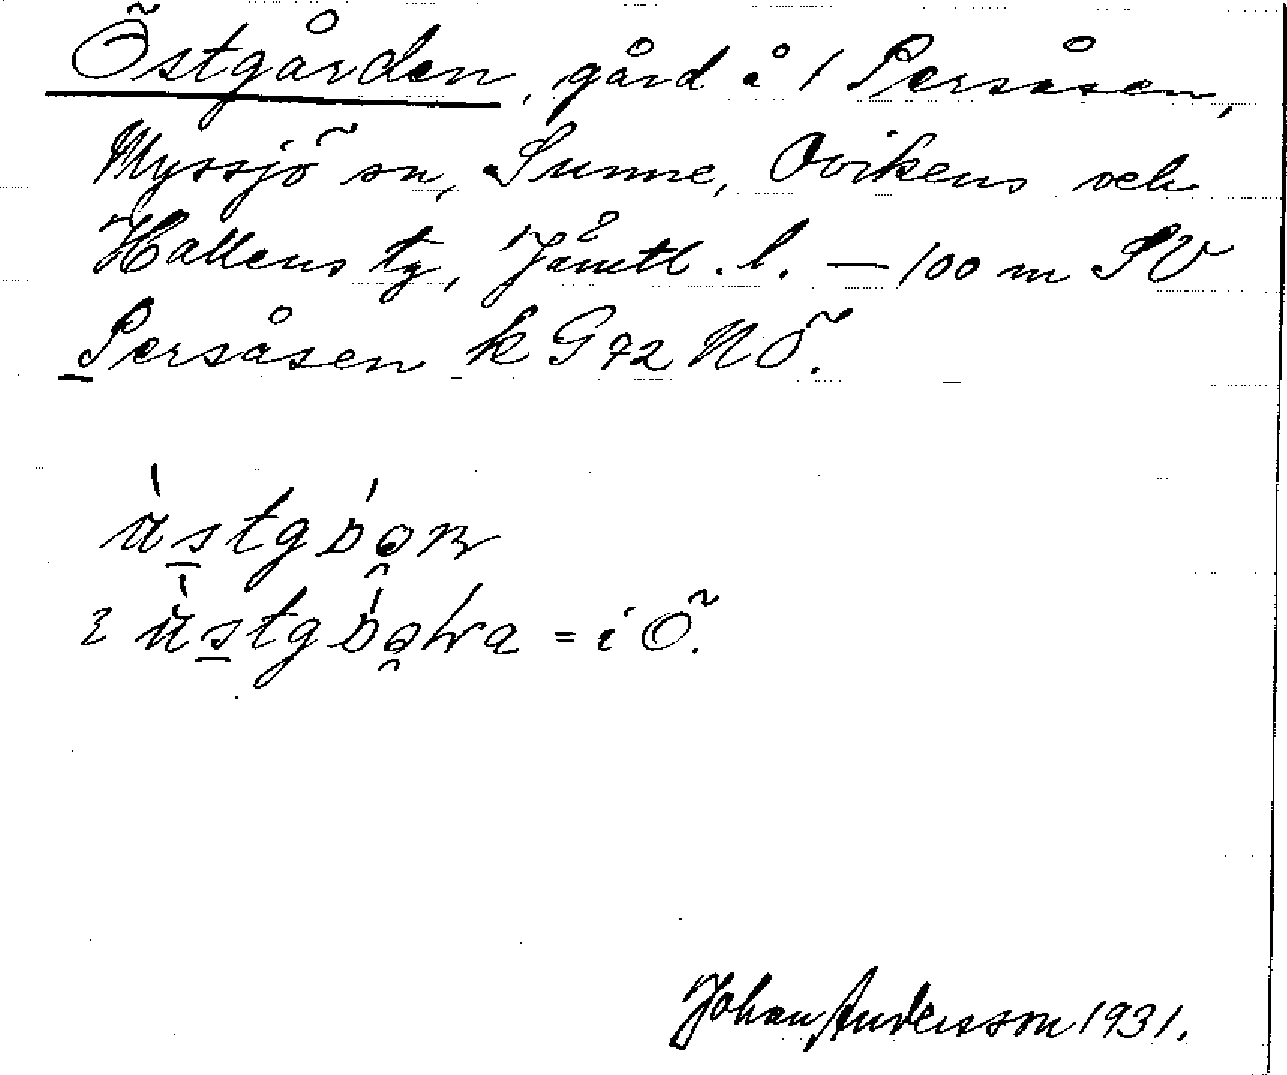 Östgården, gård å 1 Persåsen,
Myssjö sn, Sunne, Ovikens och
Hallens tg, Jämtl. l. — 100 m SV
Persåsen k G 72 NÖ.
= i Ö.
Johan Andersson 1931.